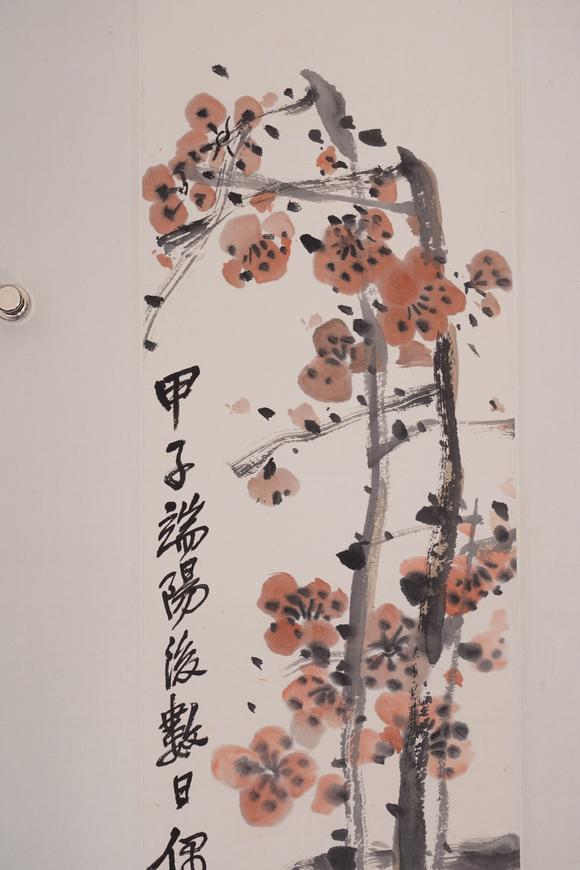 甲子端陽後數日偶